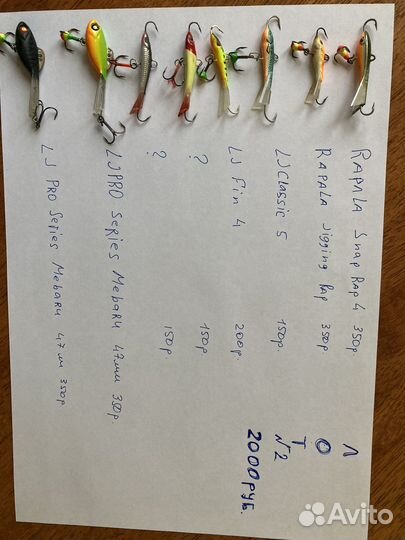 RAPALA Snap Rap 4 350р
RAPALA Jigging Rap 350р
LJ Classic 5 150р.
LJ Fin 4 200р.
? 150р
? 150р
LJ PRO SERIES Mebaru 47мм 350р.
LJ PRO Series Mebaru 47мм 350р.
ЛОТ
№2
2000РУБ.
Avito